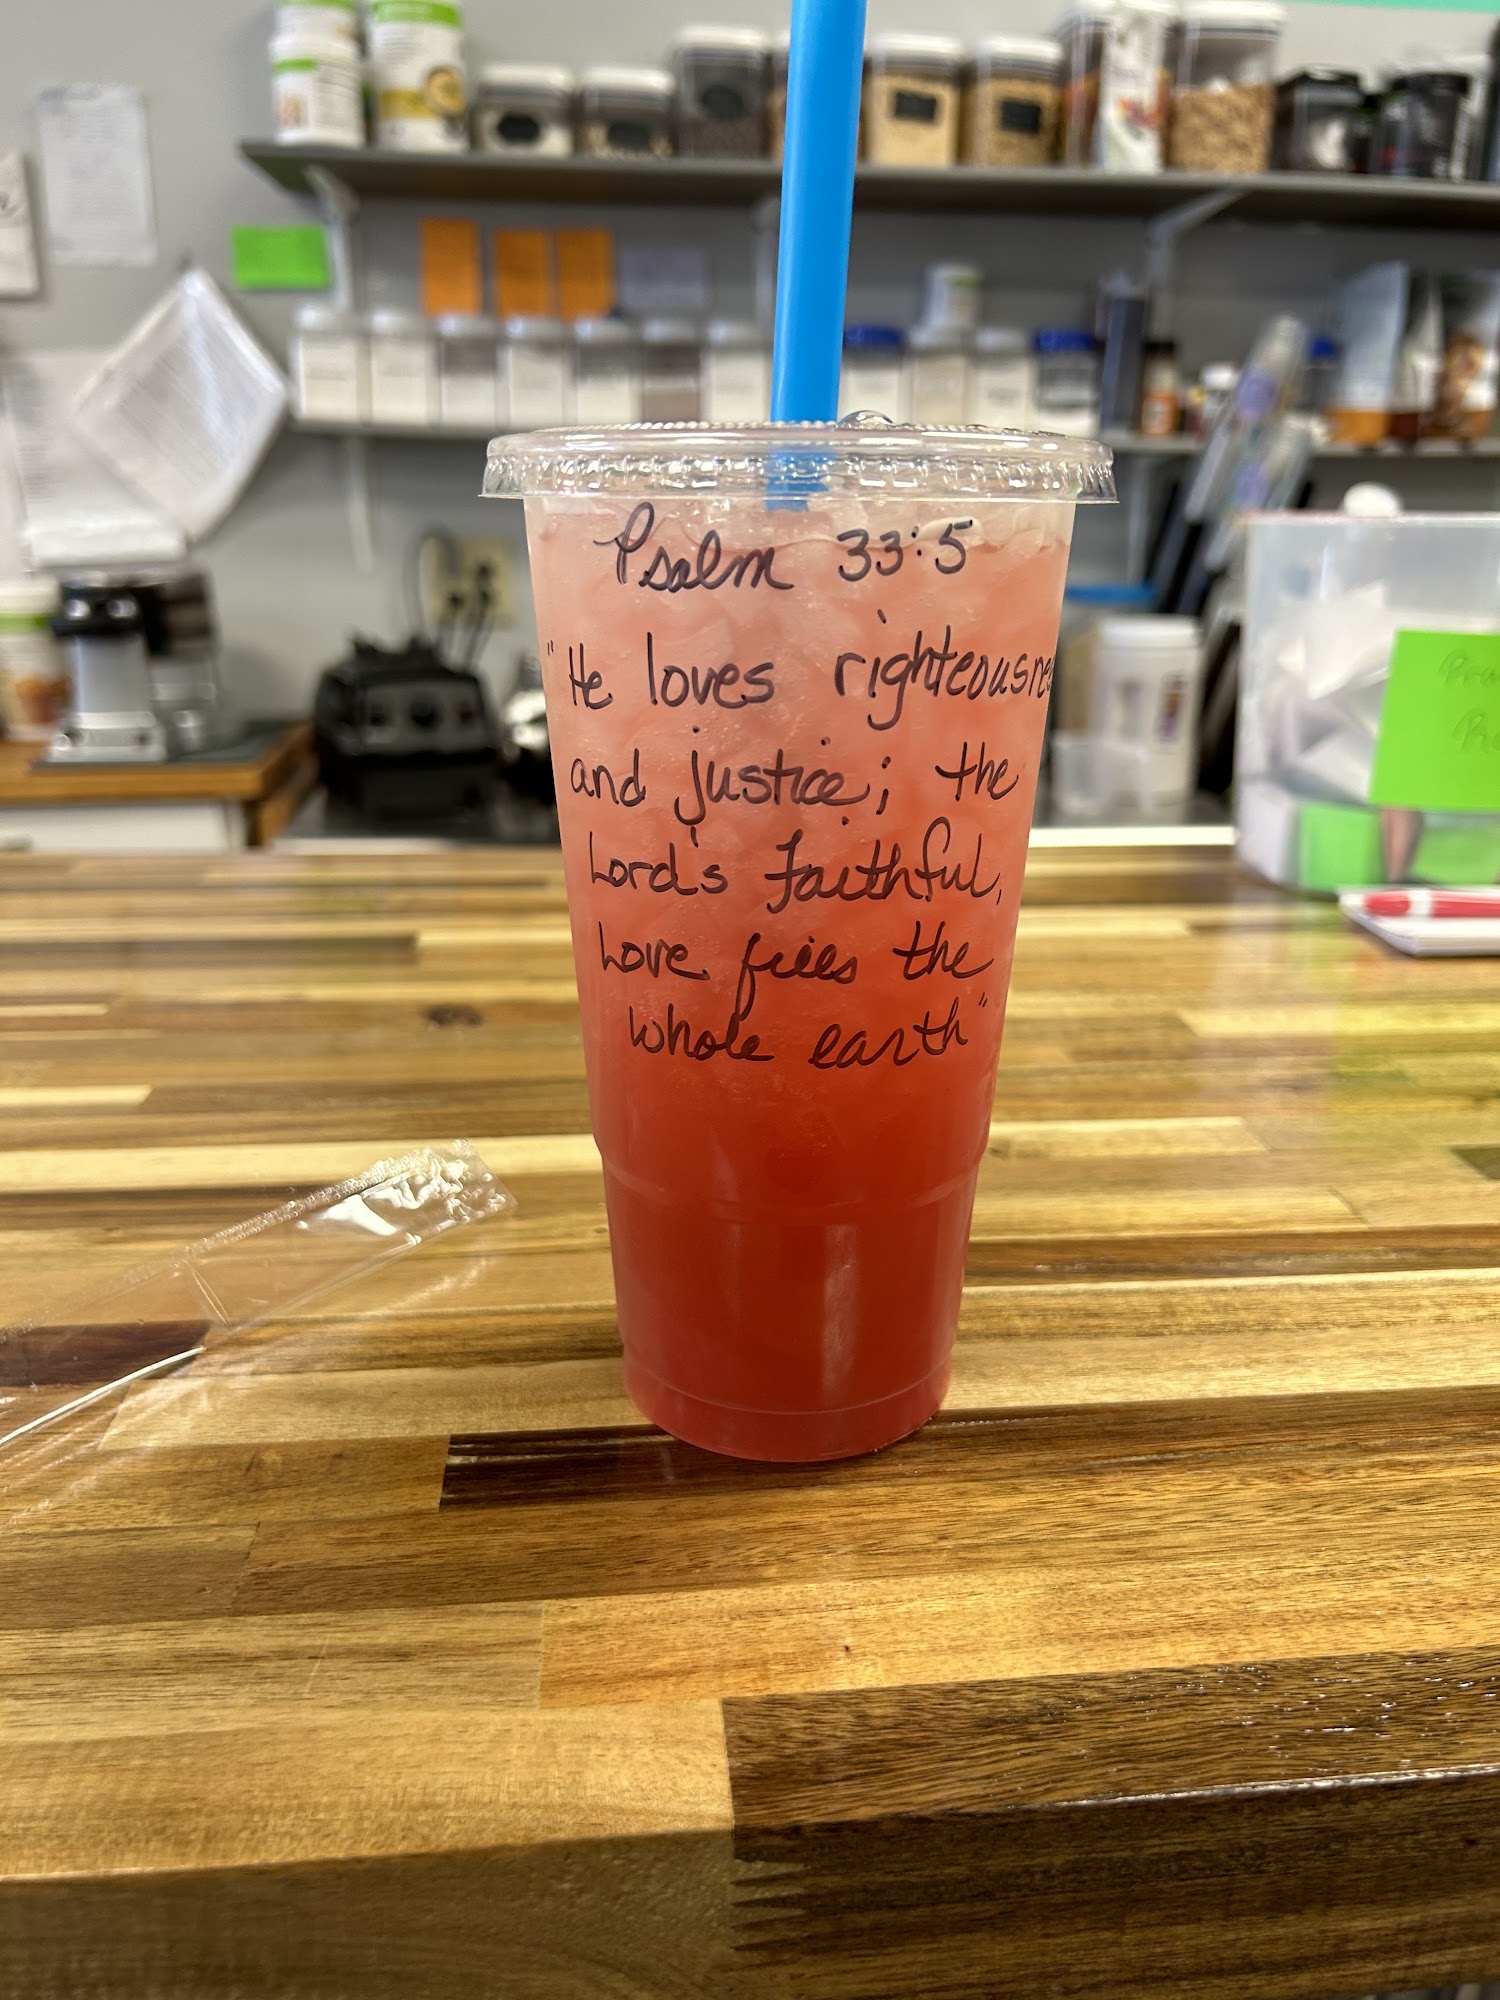 Psalm 33:5
"He loves righteousne
and justice; the
Lord's Faithful,
Love fills the
whole earth"